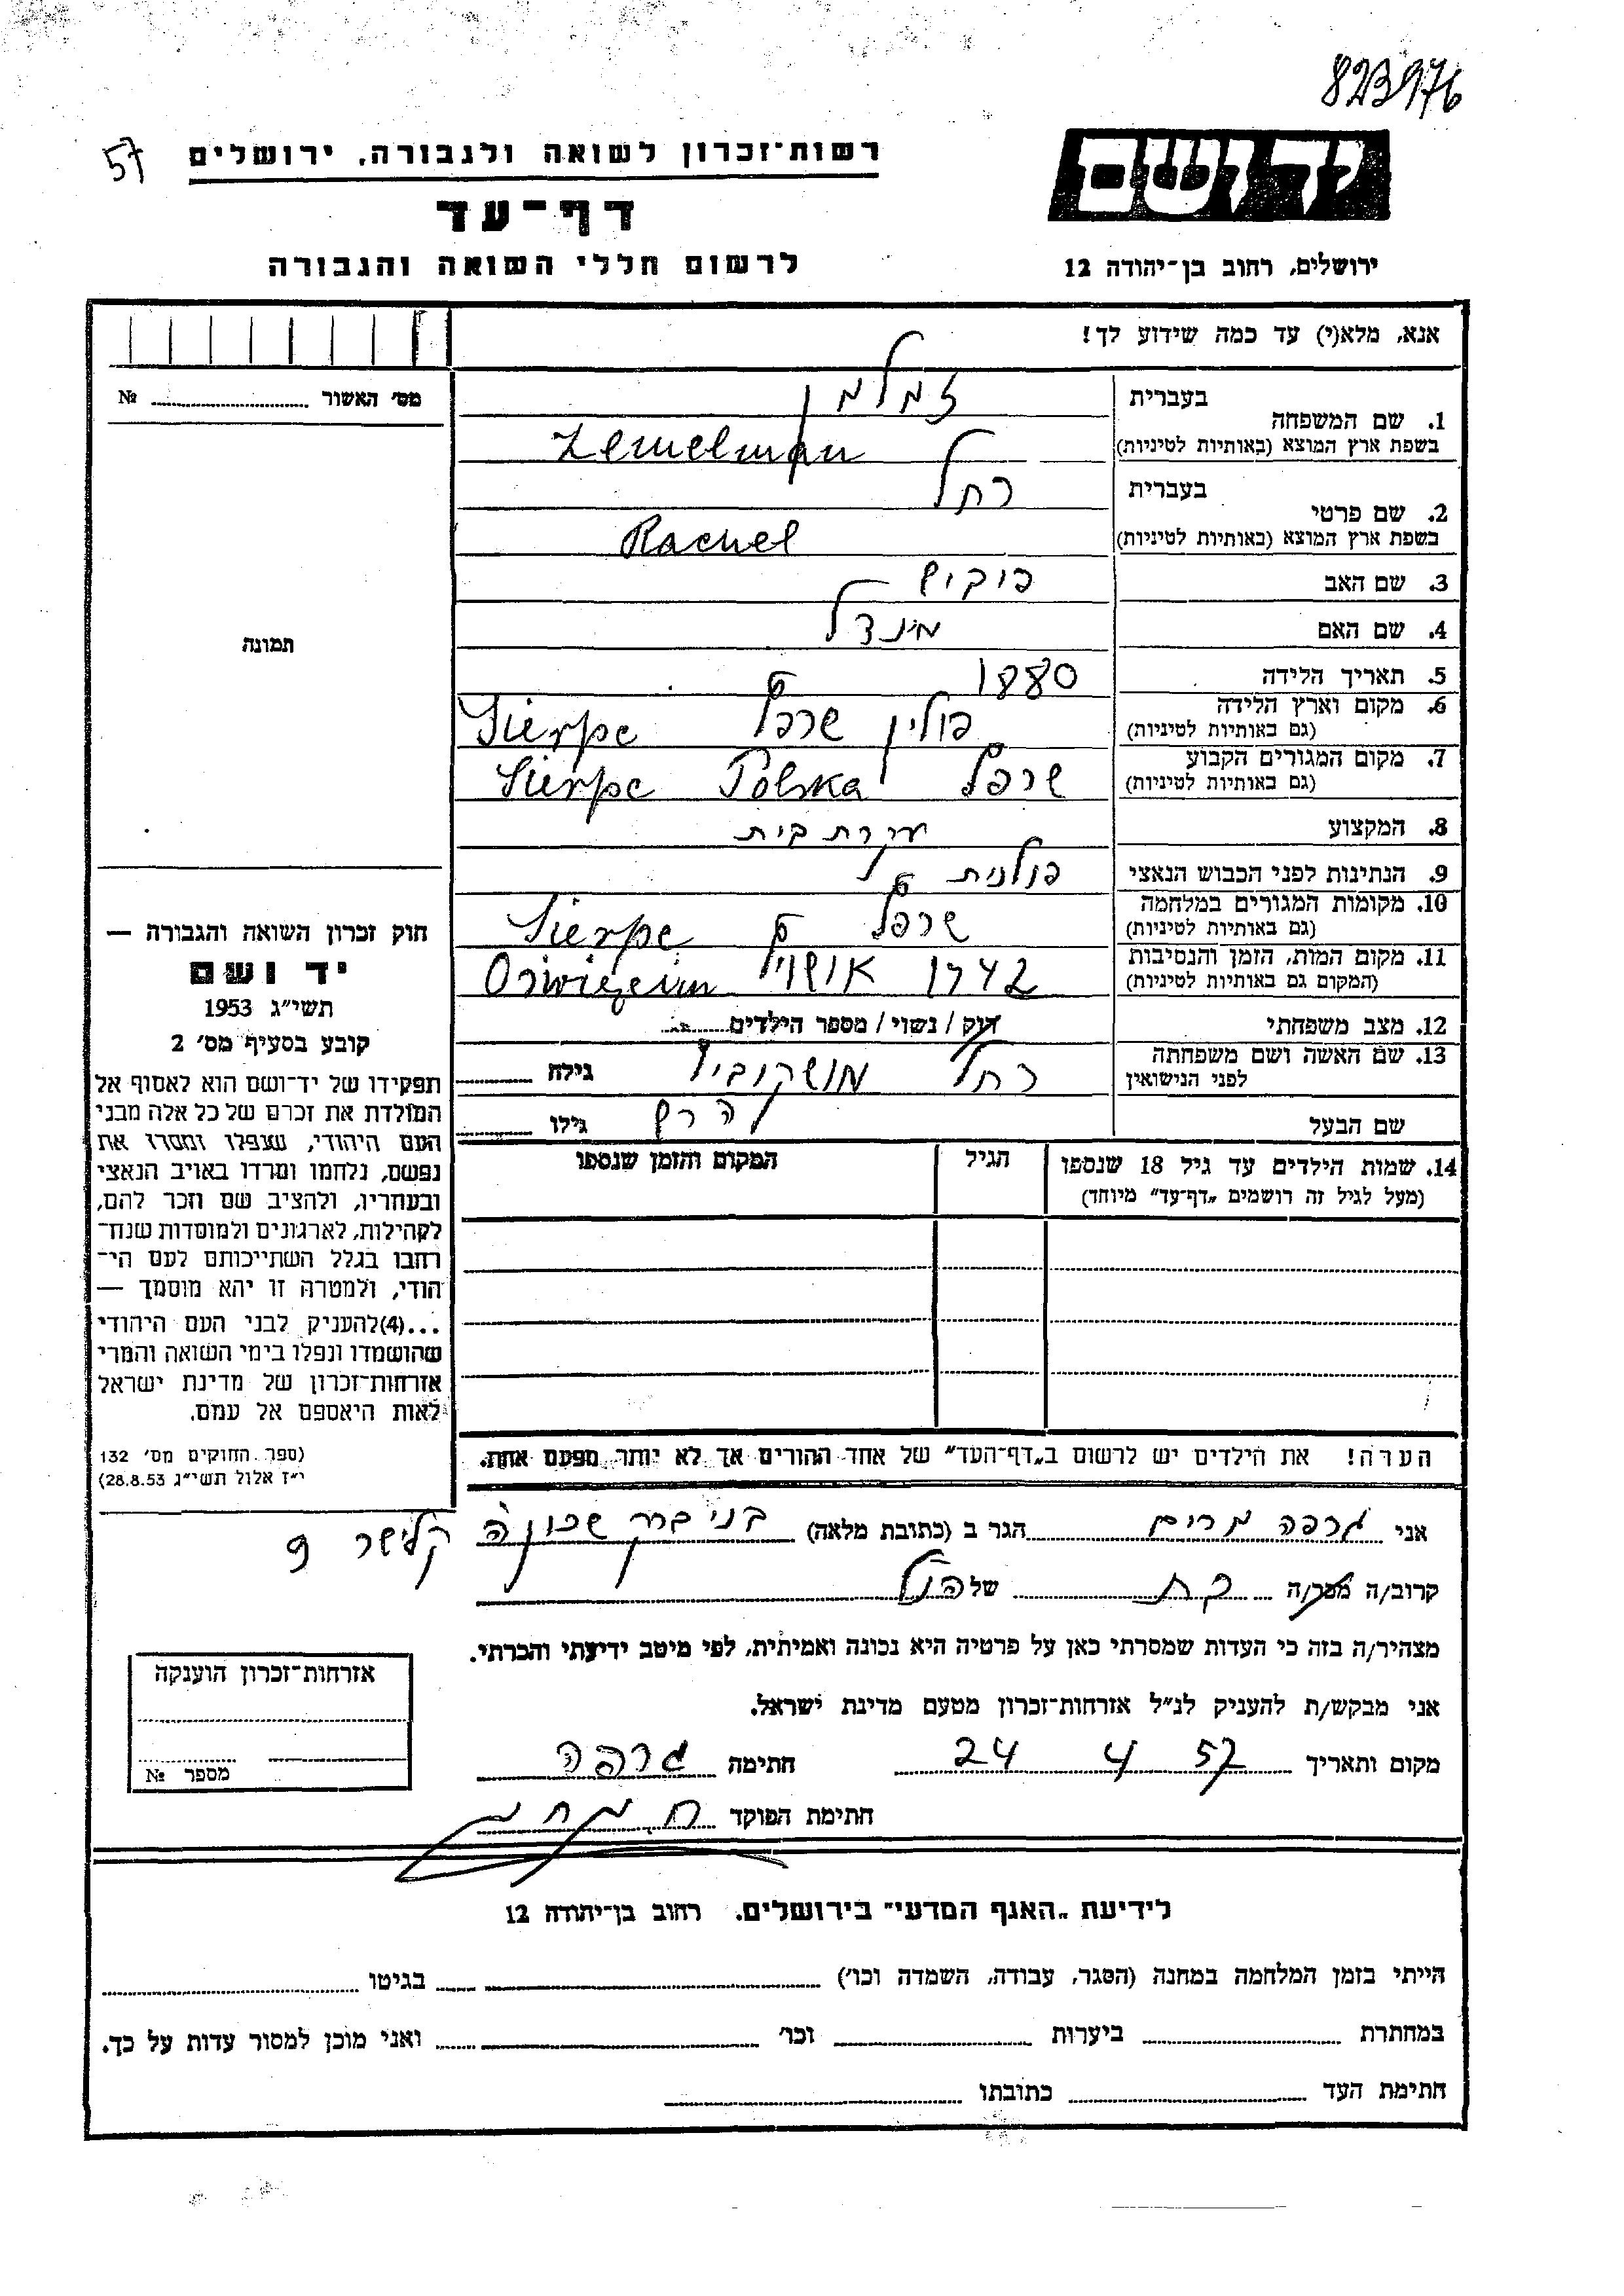 823976
57
רשות־זכרון לשואה ולגבורה, ירושלים
יד ושם
דף־עד
ירושלים, רחוב בן־יהודה 12
לרשום חללי השואה והגבורה
אנא, מלא(י) עד כמה שידוע לך!
מס׳ האשור № 
1. שם המשפחה
בעברית זמלמן
בשפת ארץ המוצא (באותיות לטיניות) Zemelman
2. שם פרטי
בעברית רחל
בשפת ארץ המוצא (באותיות לטיניות) Rachel
3. שם האב פייביש
4. שם האם מינדל
תמונה
5. תאריך הלידה 1880
6. מקום וארץ הלידה
(גם באותיות לטיניות) פולין שרפץ Sierpc
7. מקום המגורים הקבוע
(גם באותיות לטיניות) שרפץ Polska Sierpc
8. המקצוע עקרת בית
9. הנתינות לפני הכבוש הנאצי פולנית
10. מקומות המגורים במלחמה
(גם באותיות לטיניות) שרפץ Sierpc
11. מקום המות, הזמן והנסיבות
(המקום גם באותיות לטיניות) 1942 Oświęcim
12. מצב משפחתי רווק / נשוי / מספר הילדים
13. שם האשה ושם משפחתה
לפני הנישואין רחל מושקוביץ גילה
שם הבעל הרש גילו
14. שמות הילדים עד גיל 18 שנספו
(מעל לגיל זה רושמים „דף־עד״ מיוחד)
הגיל
המקום והזמן שנספו
חוק זכרון השואה והגבורה —
יד ושם
תשי״ג 1953
קובע בסעיף מס׳ 2
תפקידו של יד־ושם הוא לאסוף אל
המולדת את זכרם של כל אלה מבני
העם היהודי, שנפלו ומסרו את
נפשם, נלחמו ומרדו באויב הנאצי
ובעוזריו, ולהציב שם וזכר להם,
לקהילות, לארגונים ולמוסדות שנח־
רבו בגלל השתייכותם לעם הי־
הודי, ולמטרה זו יהא מוסמך —
...(4)להעניק לבני העם היהודי
שהושמדו ונפלו בימי השואה והמרי
אזרחות־זכרון של מדינת ישראל
לאות היאספם אל עמם.
(ספר החוקים מס׳ 132
י״ז אלול תשי״ג 28.8.53)
הערה! את הילדים יש לרשום ב„דף־העד״ של אחד ההורים אך לא יותר מפעם אחת.
אני גרפה מרים הגר ב (כתובת מלאה) בני ברק שכונה קלישר 9
קרוב/ה מכר/ה בת של הנ״ל
מצהיר/ה בזה כי העדות שמסרתי כאן על פרטיה היא נכונה ואמיתית, לפי מיטב ידיעתי והכרתי.
אני מבקש/ת להעניק לנ״ל אזרחות־זכרון מטעם מדינת ישראל.
מקום ותאריך 24 4 57 חתימה גרפה
חתימת הפוקד
אזרחות־זכרון הוענקה
מספר №
לידיעת „האגף המדעי״ בירושלים. רחוב בן־יהודה 12
הייתי בזמן המלחמה במחנה (הסגר, עבודה, השמדה וכו׳) בגיטו
במחתרת ביערות וכו׳ ואני מוכן למסור עדות על כך.
חתימת העד כתובתו